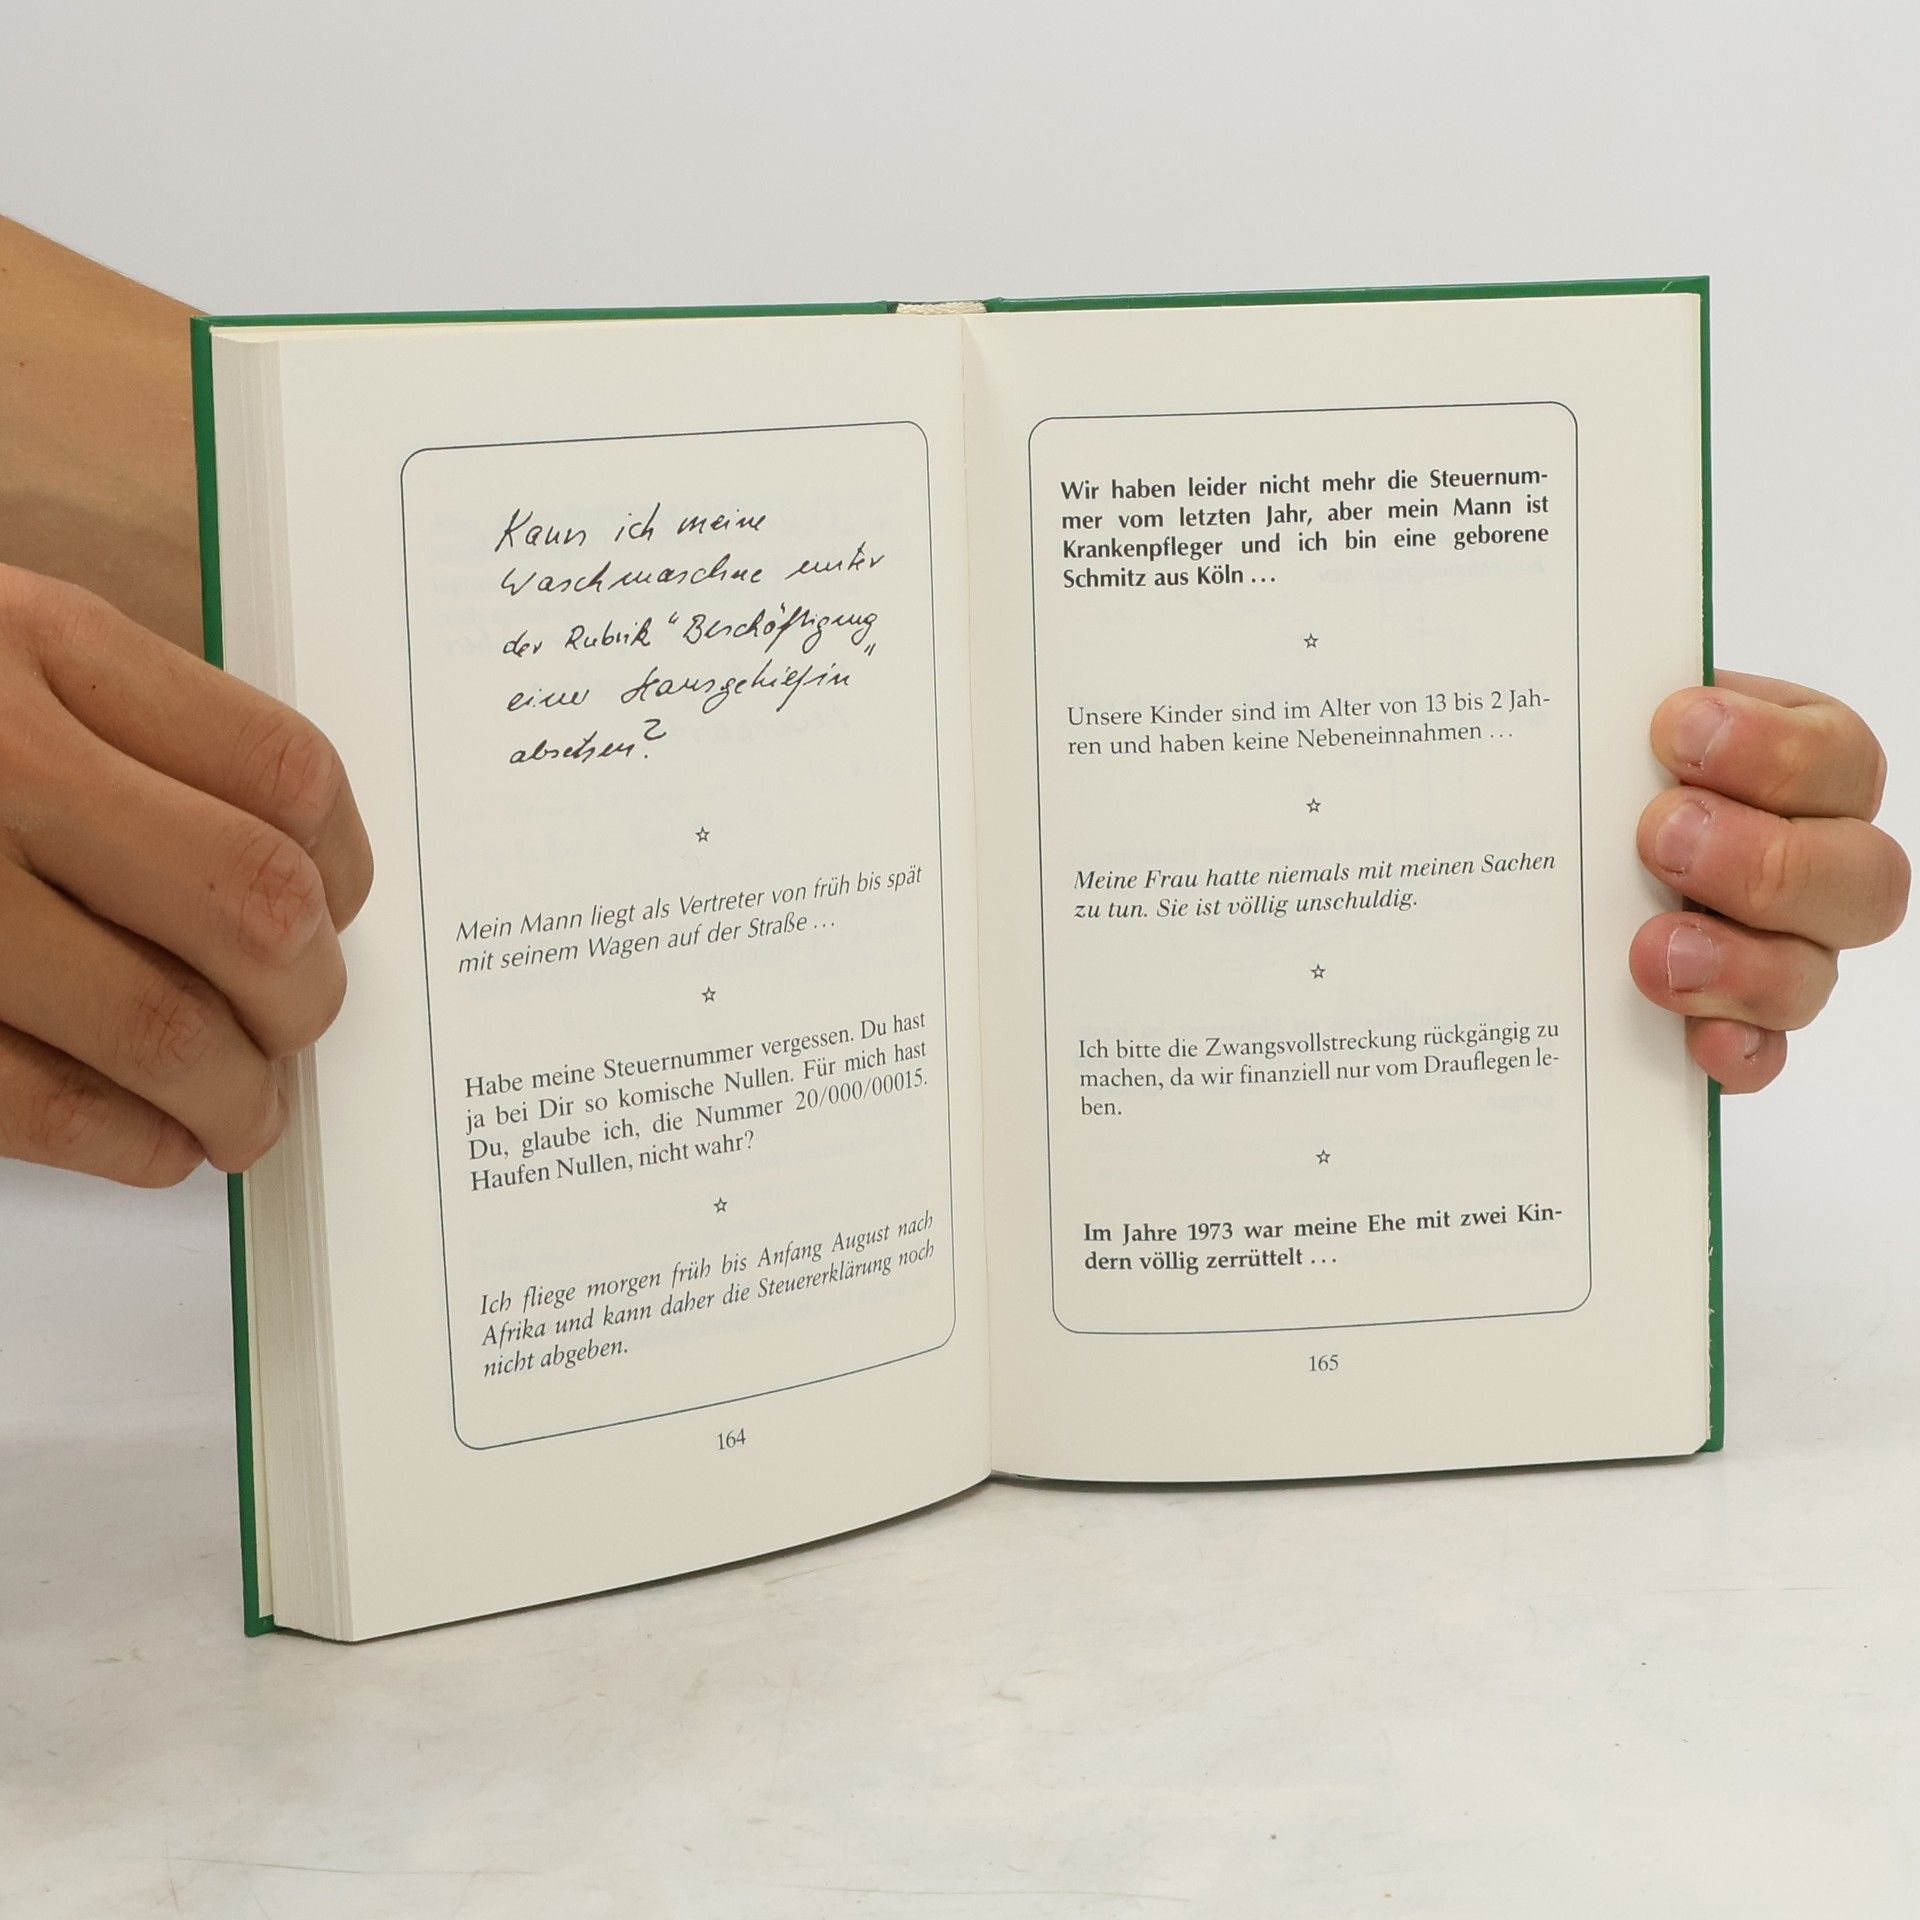 Kann ich meine
Waschmaschine unter
der Rubrik "Beschäftigung
einer Hausgehilfin"
absetzen?
☆
Mein Mann liegt als Vertreter von früh bis spät
mit seinem Wagen auf der Straße ...
☆
Habe meine Steuernummer vergessen. Du hast
ja bei Dir so komische Nullen. Für mich hast
Du, glaube ich, die Nummer 20/000/00015.
Haufen Nullen, nicht wahr?
☆
Ich fliege morgen früh bis Anfang August nach
Afrika und kann daher die Steuererklärung noch
nicht abgeben.
164
Wir haben leider nicht mehr die Steuernum-
mer vom letzten Jahr, aber mein Mann ist
Krankenpfleger und ich bin eine geborene
Schmitz aus Köln ...
☆
Unsere Kinder sind im Alter von 13 bis 2 Jah-
ren und haben keine Nebeneinnahmen ...
☆
Meine Frau hatte niemals mit meinen Sachen
zu tun. Sie ist völlig unschuldig.
☆
Ich bitte die Zwangsvollstreckung rückgängig zu
machen, da wir finanziell nur vom Drauflegen le-
ben.
☆
Im Jahre 1973 war meine Ehe mit zwei Kin-
dern völlig zerrüttelt ...
165